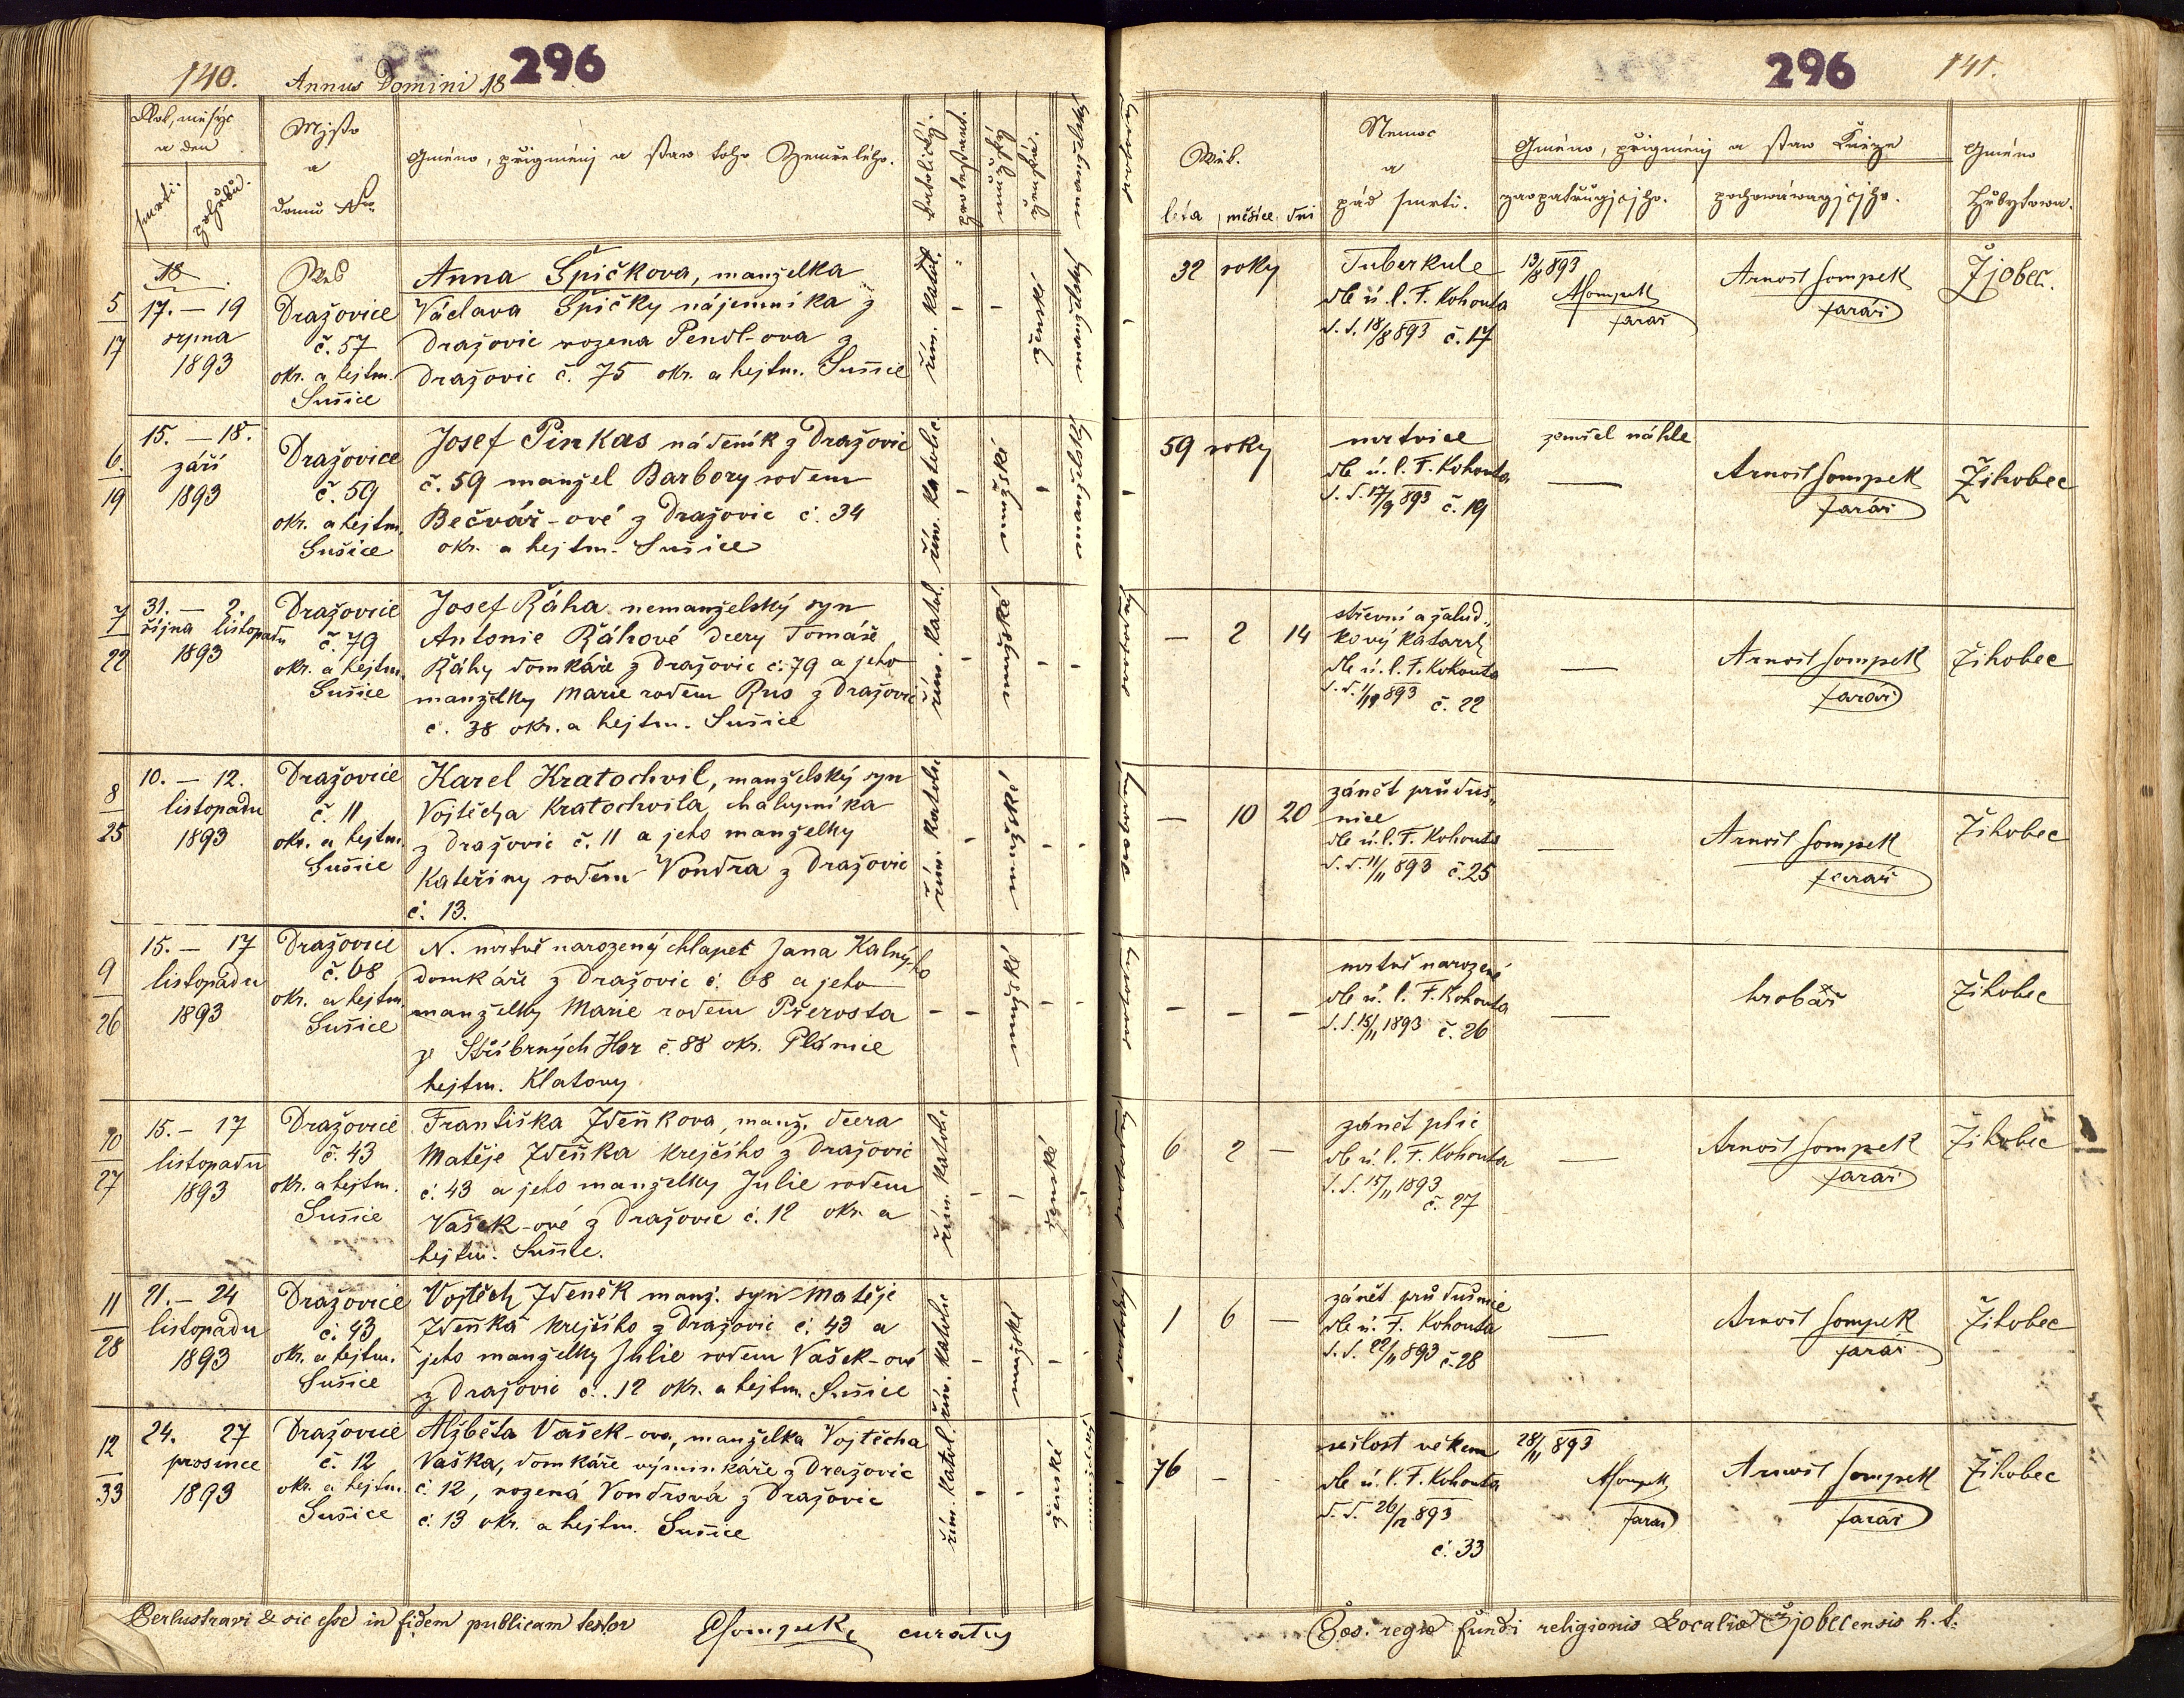 140. Annus Domini 18 296
Rok, měsýc
a den
smrti. pohřbu.
Mjsto
a
domů Nro.
Gméno, přigmēnj a staw toho Zemřelého.
katolický.
protestant.
mužský
ženská.
manželský
18
5
17
17. – 19
srpna
1893
Wes
Dražovice
č. 57
okr. a hejtm.
Sušice
Anna Špičkova, manželka
Václava Špičky nájemníka z
Dražovic rozena Pendl-ova z
Dražovic č. 75 okr. a hejtm. Sušice
řím. katol.
ženské
manželský
6.
19
15. – 18.
září
1893
Dražovice
č. 59
okr. a hejtm.
Sušice
Josef Pinkas nádeník z Dražovic
č. 59 manžel Barbory rodem
Bečvář-ové z Dražovic č. 34
okr. a hejtm. Sušice
řím. katolic.
mužské
manželský
7
22
31. – 2.
října listopadu
1893
Dražovice
č. 79
okr. a hejtm.
Sušice
Josef Řáha nemanželský syn
Antonie Řáhové dcery Tomáše
Řáhy domkáře z Dražovic č. 79 a jeho
manželky Marie rodem Rus z Dražovic
č. 38 okr. a hejtm. Sušice
řím. katol.
mužské
8
25
10. – 12.
listopadu
1893
Dražovice
č. 11
okr. a hejtm.
Sušice
Karel Kratochvil, manželský syn
Vojtěcha Kratochvila, chalupníka
z Dražovic č. 11 a jeho manželky
Kateřiny rodem Vondra z Dražovic
č. 13.
řím. katolic
mužské
9
26
15. – 17
listopadu
1893
Dražovice
č. 68
okr. a hejtm.
Sušice
N. mrtvě narozený chlapec Jana Kalnýho
domkáře z Dražovic č. 68 a jeho
manželky Marie rodem Přerosta
ze Stříbrných Hor č. 88 okr. Plánice
hejtm. Klatovy
mužské
10
27
15. – 17
listopadu
1893
Dražovice
č. 43
okr. a hejtm.
Sušice
Františka Zdeňkova, manž. dcera
Matěje Zdeňka krejčího z Dražovic
č. 43 a jeho manželky Julie rodem
Vašek-ové z Dražovic č. 12 okr. a
hejtm. Sušice.
řím. katolic
ženské
11
28
21. – 24
listopadu
1893
Dražovice
č. 43
okr. a hejtm.
Sušice
Vojtěch Zdeněk manž. syn Matěje
Zdeňka krejčího z Dražovic č. 43 a
jeho manželky Julie rodem Vašek-ové
z Dražovic č. 12 okr. a hejtm. Sušice
řím. katolic
mužské
12
33
24. 27
prosince
1893
Dražovice
č. 12
okr. a hejtm.
Sušice
Alžběta Vašek-ova, manželka Vojtěcha
Vaška, domkáře výminkáře z Dražovic
č. 12, rozená Vondrová z Dražovic
č. 13 okr. a hejtm. Sušice
řím. katol.
ženské
Perlustravi & sic esse in fidem publicam testor ASompek curatus
296 141.
Wěk.
léta měsíce dni
Nemoc
a
pád smrti.
Gméno, přigmēnj a staw Kněze
zaopatřugjcjho. pochowáwagjcjho.
Gméno
Hřbytowa.
32 roky
Tuberkule
dle ú. l. F. Kohouta
d. d. 18/8 893 č. 17
13/8 893
ASompek
farář
Arnošt Sompek
farář
Žjobec.
59 roky
mrtvice
dle ú. l. F. Kohouta
d. d. 17/9 893 č. 19
zemřel náhle
Arnošt Sompek
farář
Žihobec
– 2 14
střevní a žalud„
kový katarrh
dle ú. l. F. Kohouta
d. d. 1/11 893 č. 22
Arnošt Sompek
farář
Žihobec
– 10 20
zánět průduš„
nice
dle ú. l. F. Kohouta
d. d. 11/11 893 č. 25
Arnošt Sompek
farář
Žihobec
– – –
mrtvě narozené
dle ú. l. F. Kohouta
d. d. 15/11 1893 č. 26
hrobář
Žihobec
6 2 –
zánět plic
dle ú. l. F. Kohouta
d. d. 15/11 1893
č. 27
Arnošt Sompek
farář
Žihobec
1 6 –
zánět průdušnice
dle ú. F. Kohouta
d. d. 22/11 893 č. 28
Arnošt Sompek
farář
Žihobec
76 –
sešlost věkem
dle ú. l. F. Kohouta
d. d. 26/12 893
č. 33
28/11 893
ASompek
farář
Arnošt Sompek
farář
Žihobec
Caes. regiae fundi religionis Localiae Žjobecensis h. t.